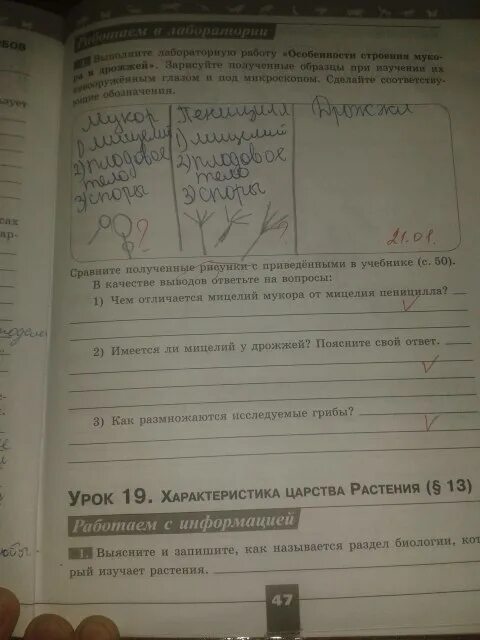 Работаем в лаборатории
Выполните лабораторную работу «Особенности строения муко-
ра и дрожжей». Зарисуйте полученные образцы при изучении их
невооружённым глазом и под микроскопом. Сделайте соответству-
ющие обозначения.
Мукор
1) мицелий
2) плодовое
тело
3) споры
?
Пеницилл
1) мицелий
2) плодовое
тело
3) споры
?
Дрожжи
21.01.
Сравните полученные рисунки с приведёнными в учебнике (с. 50).
В качестве выводов ответьте на вопросы:
1) Чем отличается мицелий мукора от мицелия пеницилла?
2) Имеется ли мицелий у дрожжей? Поясните свой ответ.
3) Как размножаются исследуемые грибы?
Урок 19. Характеристика царства Растения (§ 13)
Работаем с информацией
1. Выясните и запишите, как называется раздел биологии, кот
рый изучает растения.
47